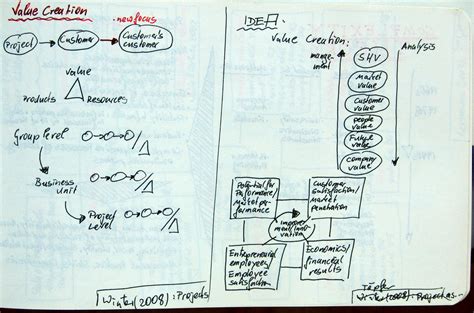 Value Creation
new focus
Project
Customer
Customer's
customer
value
Products
Resources
Group level
Business
unit
Project
Level
Winter (2008): Projects
IDEA:
Value Creation:
manage-
ment
Analysis
SHV
Market
value
Customer
value
people
value
Future
value
company
value
Potential for
Performance/
Market per-
formance
Customer
satisfaction/
Market
penetration
improve-
ment/inno-
vation
Entrepreneurial
employees/
Employee
satisfaction
Economics/
financial
results
Töpfer